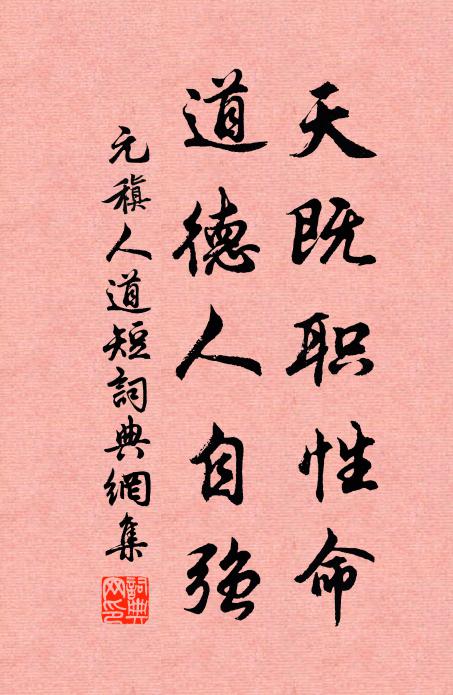 天既职性命
道德人自强
元稹人道短詞典網集
詞典
网印